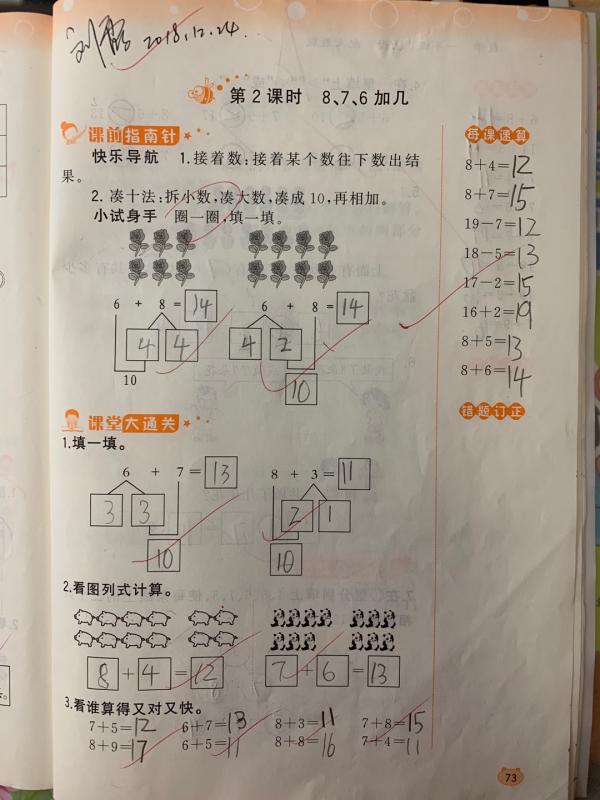 2018.12.24
第2课时 8、7、6加几
课前指南针
快乐导航 1.接着数:接着某个数往下数出结
果。
2.凑十法:拆小数,凑大数,凑成10,再相加。
小试身手 圈一圈,填一填。
6 + 8 = 14
4 4
10
6 + 8 = 14
4 2
10
课堂大通关
1.填一填。
6 + 7 = 13
3 3
10
8 + 3 = 11
2 1
10
2.看图列式计算。
8 + 4 = 12
7 + 6 = 13
3.看谁算得又对又快。
7+5=12 6+7=13 8+3=11 7+8=15
8+9=17 6+5=11 8+8=16 7+4=11
每课速算
8+4=12
8+7=15
19-7=12
18-5=13
17-2=15
16+2=19
8+5=13
8+6=14
错题订正
73